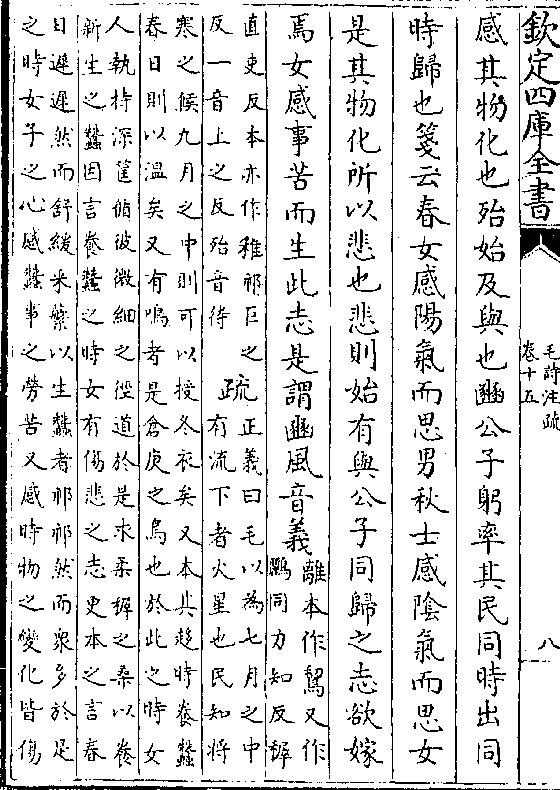 欽定四庫全書
毛詩注疏
卷十五
八
感其物化也殆始及與也豳公子躬率其民同時出同
時歸也箋云春女感陽氣而思男秋士感陰氣而思女
是其物化所以悲也悲則始有與公子同歸之志欲嫁
焉女感事苦而生此志是謂豳風音義
離本作鸝又作
鵹同力知反穉
直吏反本亦作稚祁巨之
反一音上之反殆音待
疏
正義曰毛以為七月之中
有流下者火星也民知將
寒之候九月之中則可以授冬衣矣又本其趍時養蠶
春日則以溫矣又有鳴者是倉庚之鳥也於此之時女
人執持深筐循彼微細之徑道於是求柔穉之桑以養
新生之蠶因言養蠶之時女有傷悲之志更本之言春
日遲遲然而舒緩采蘩以生蠶者祁祁然而衆多於是
之時女子之心感蠶事之勞苦又感時物之變化皆傷